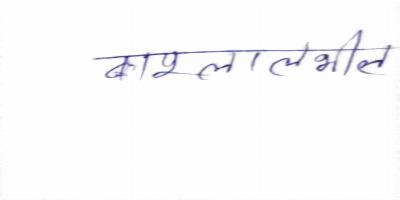 कारुलाल भील